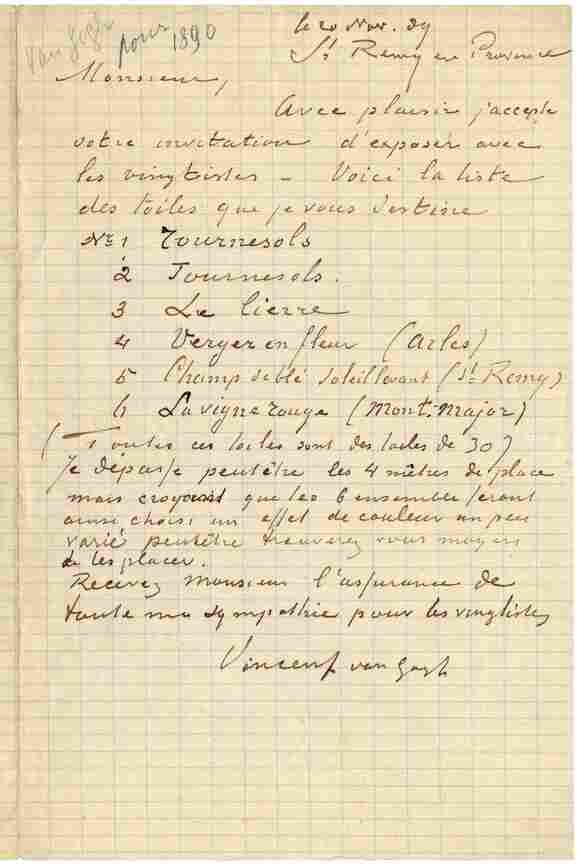 Van Gogh pour 1890
le 20 Nov. 89
St Remy en Provence
Monsieur,
Avec plaisir j'accepte
votre invitation d'exposer avec
les vingtistes – Voici la liste
des toiles que je vous destine
No 1 Tournesols
2 Tournesols.
3 Le lierre
4 Verger en fleur (Arles)
5 Champ de blé soleil levant (St Remy)
6 La vigne rouge (Mont-major)
(Toutes ces toiles sont des toiles de 30)
Je dépasse peutêtre les 4 mètres de place
mais croyant que les 6 ensemble seront
ainsi choisi un effet de couleur un peu
varié peutêtre trouverez vous moyen
de les placer.
Recevez monsieur l'assurance de
toute ma sympathie pour les vingtistes
Vincent van Gogh